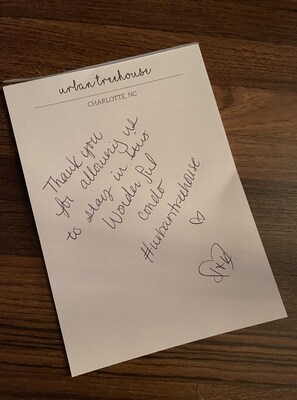 urbantreehouse
CHARLOTTE, NC
Thank you
for allowing us
to stay in this
Wonderful
Condo
#urbantreehouse